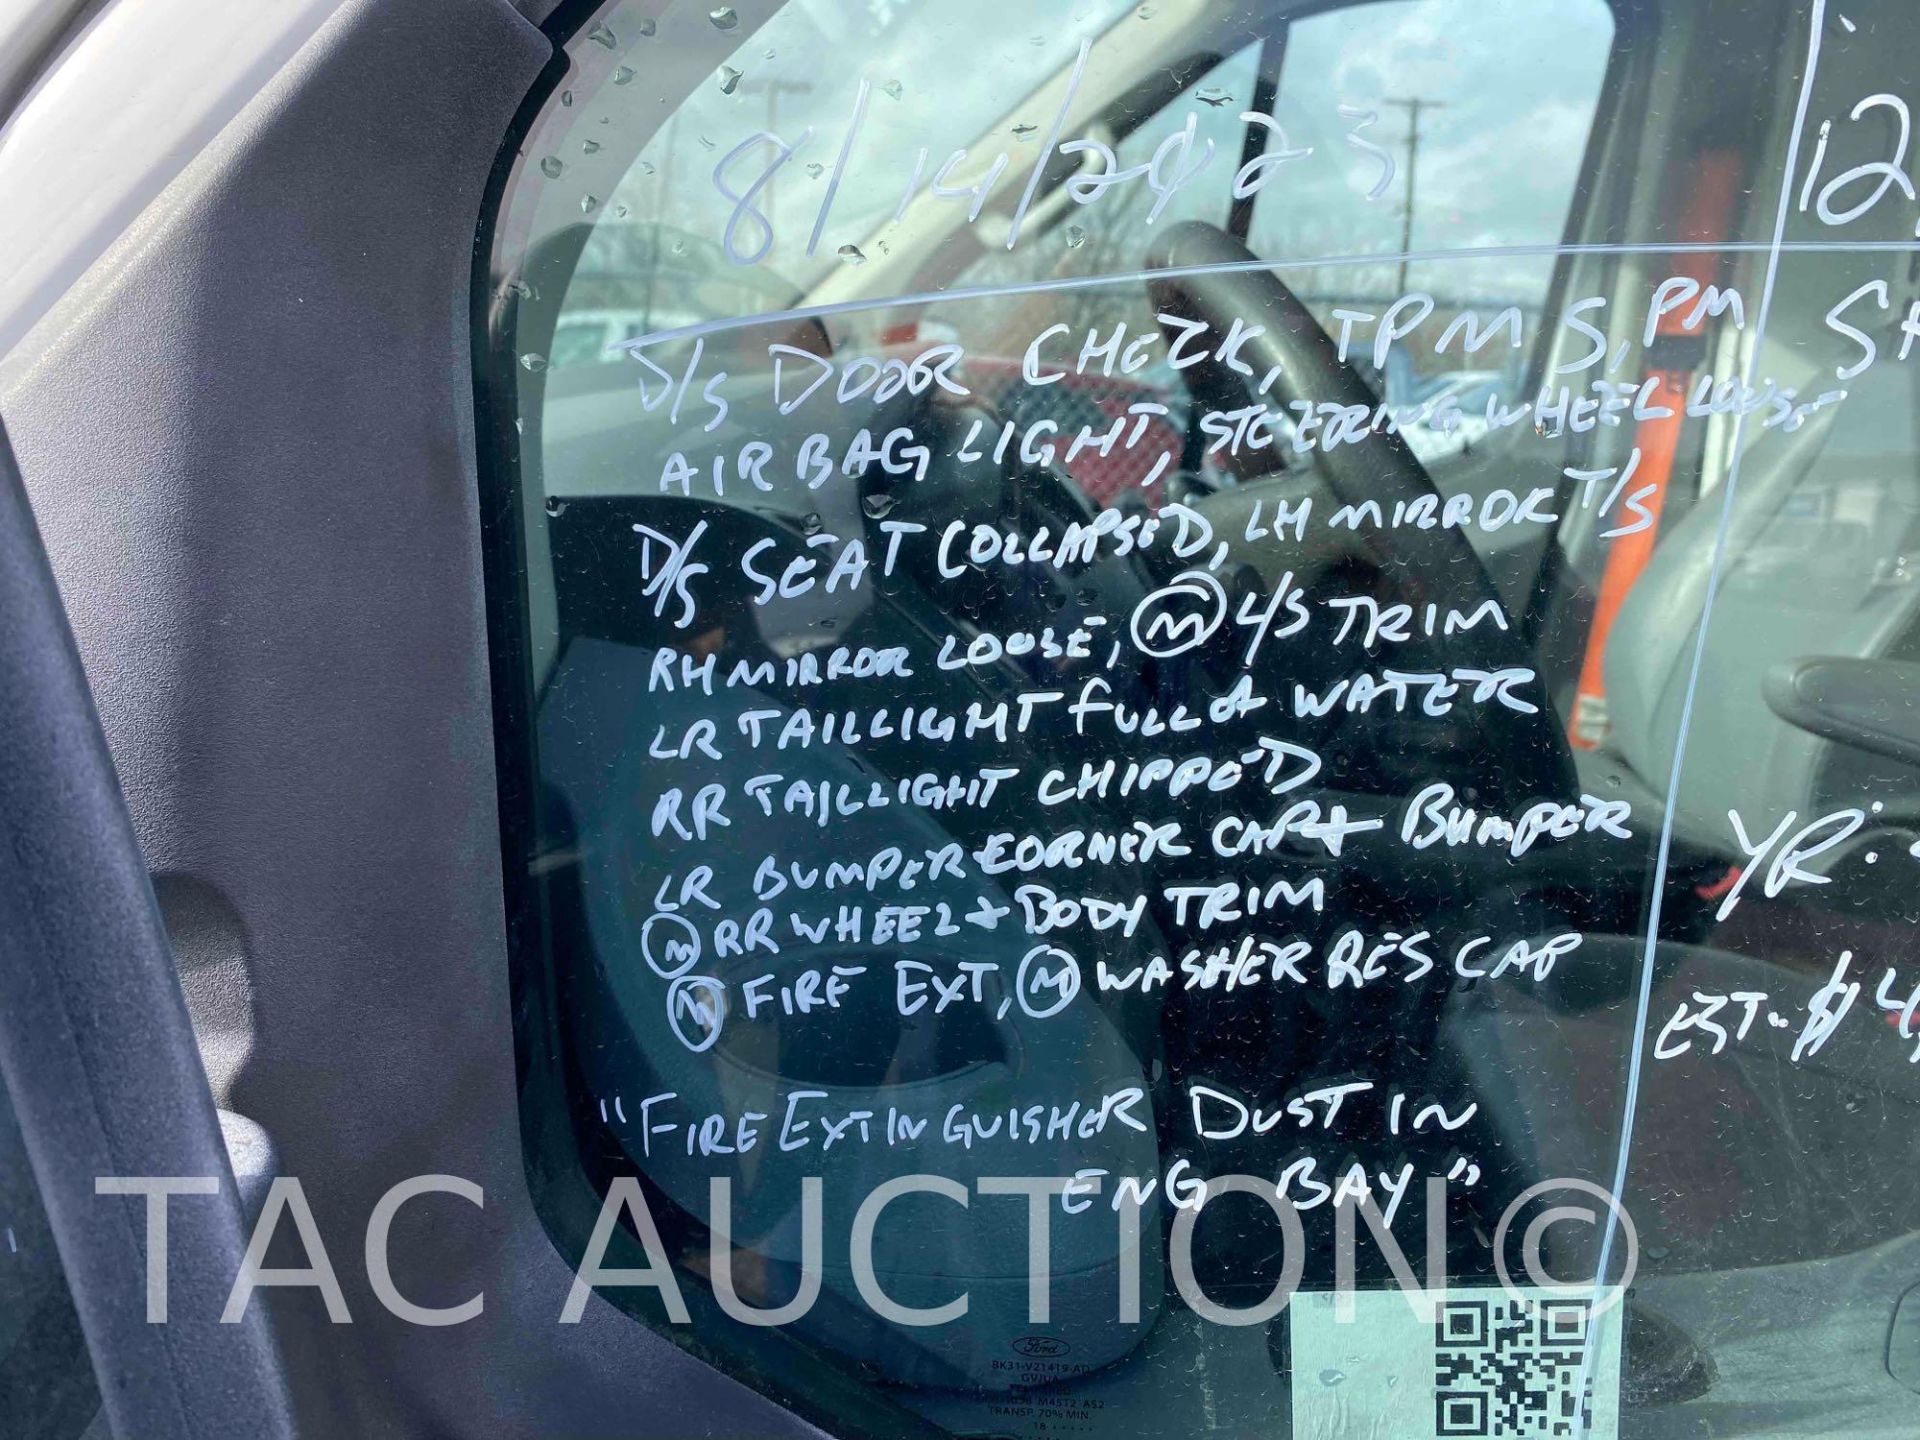 8/14/2023
12
D/S DOOR CHECK, TPMS, PM
AIR BAG LIGHT, STEERING WHEEL LOOSE
D/S SEAT COLLAPSED, LH MIRROR T/S
RH MIRROR LOOSE, M L/S TRIM
LR TAILLIGHT FULL of WATER
RR TAILLIGHT CHIPPED
LR BUMPER CORNER CAP + BUMPER
M RR WHEEL + BODY TRIM
M FIRE EXT, M WASHER RES CAP
"FIRE EXTINGUISHER DUST IN
ENG BAY"
YR:
EST. $14
TAC AUCTION©
Ford
BK31-V21419-AD
M45T2 AS2
TRANSP. 70% MIN.
18